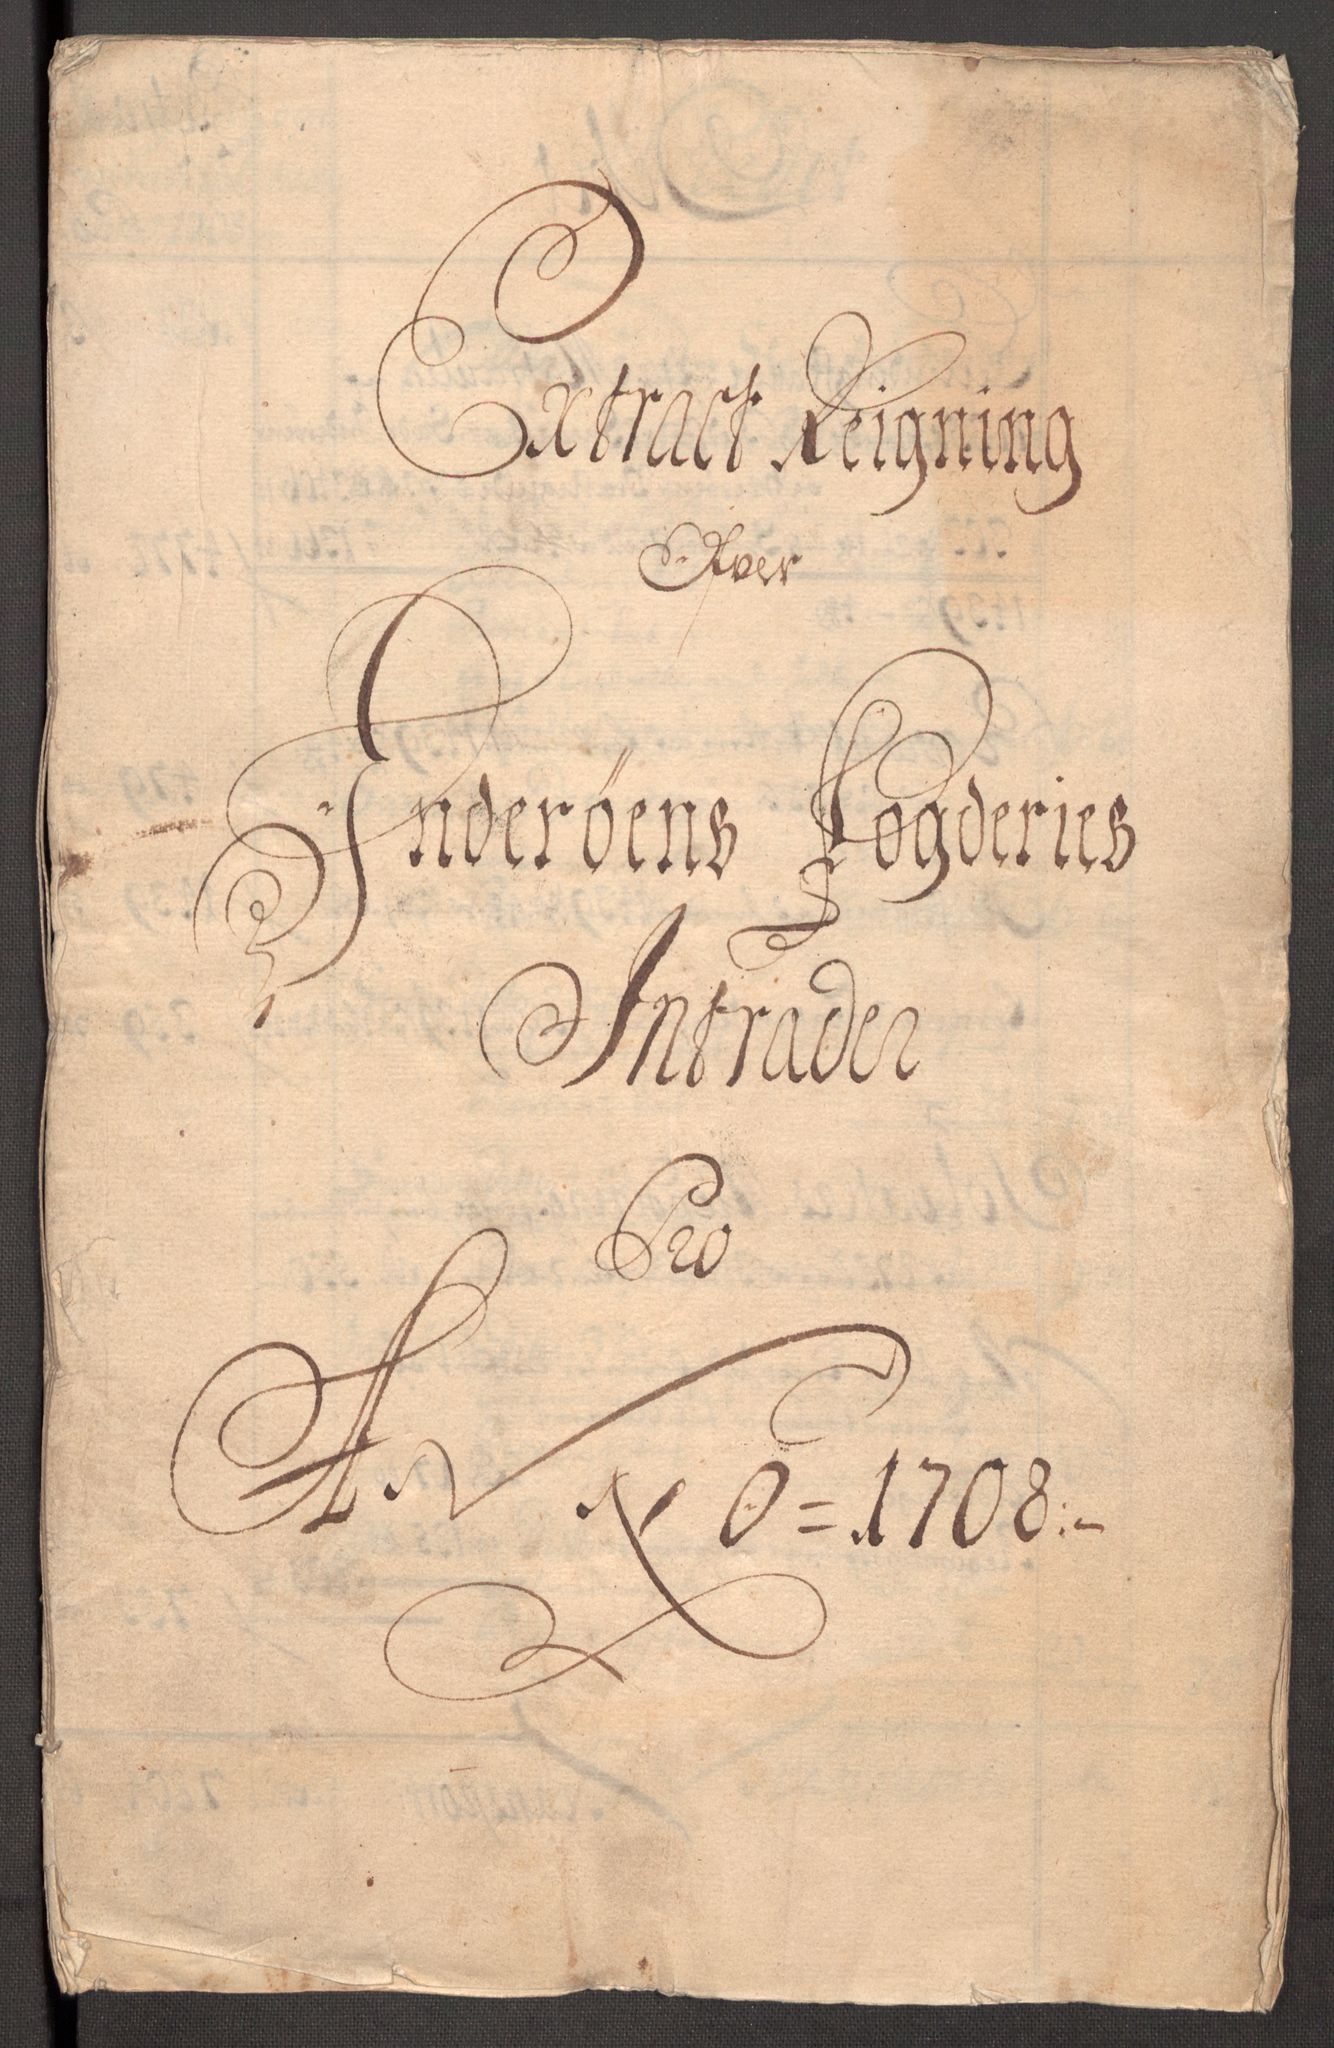 Extract Reigning
Ofver
Inderöens Fogderies
Intrader
Pro
ANNO = 1708:-